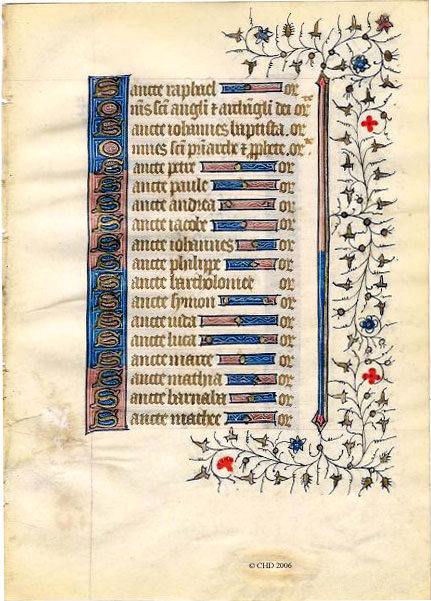 Sancte raphael or
Om̄s sc̄i angl̄i ⁊ archāgl̄i dei or
Sancte iohannes baptista. or
Omnes sc̄i pr̄iarche ⁊ ꝓphete. or
Sancte petre or
Sancte paule or
Sancte andrea or
Sancte iacobe or
Sancte iohannes or
Sancte philippe or
Sancte bartholomee or
Sancte symon or
Sancte iuda or
Sancte luca or
Sancte marce or
Sancte mathia or
Sancte barnaba or
Sancte mathee or
© CHD 2006